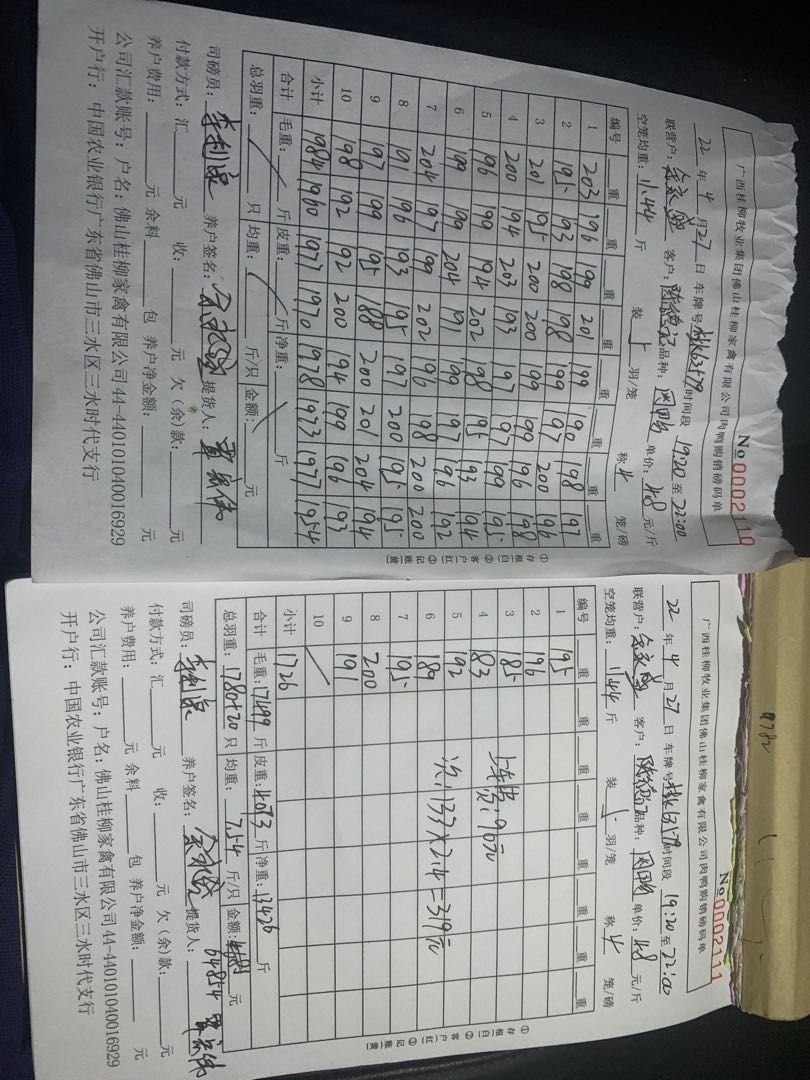 广西桂柳牧业集团佛山桂柳家禽有限公司肉鸭购销磅码单
No 0002110
22 年 4 月 27 日 车牌号 63579 时间段 19:20 至 22:00
联营户: 客户: 品种: 单价: 4.8 元/斤
空笼均重: 11.44 斤 装 5 羽/笼 称 4 笼/磅
编号 重 重 重 重 重 重 重 重
1 203 196 199 201 199 190 198 197
2 195 193 198 198 199 197 200 196
3 201 195 200 200 199 199 196 198
4 200 194 203 193 197 197 199 195
5 196 199 194 202 198 195 193 194
6 199 199 204 191 199 197 196 192
7 204 197 199 202 196 198 200 200
8 191 196 193 195 196 200 195 195
9 197 199 195 188 200 201 204 194
10 198 192 192 200 194 199 196 193
小计 1984 1960 1977 1970 1978 1973 1977 1954
合计 毛重: 斤 皮重: 斤 净重: 斤
总羽重: 只 均重: 斤/只 金额: 元
司磅员: 养户签名: 提货人:
付款方式: 汇 元 收: 元 欠(余)款: 元
养户费用: 元 余料 包 养户净金额: 元
公司汇款账号: 户名: 佛山桂柳家禽有限公司 44-440101040016929
开户行: 中国农业银行广东省佛山市三水区三水时代支行
①存根(白) ②客户(红) ③记账(黄)
广西桂柳牧业集团佛山桂柳家禽有限公司肉鸭购销磅码单
No 0002111
22 年 4 月 27 日 车牌号 63579 时间段 19:20 至 22:00
联营户: 客户: 品种: 单价: 4.8 元/斤
空笼均重: 11.44 斤 装 5 羽/笼 称 4 笼/磅
编号 重 重 重 重 重 重 重 重
1 195
2 196
3 185
4 183
5 192
6 189
7 195
8 200
9 191
10
小计 1726
上车费:96元
次:133×2.4=319元
合计 毛重: 17499 斤 皮重: 4073 斤 净重: 13426 斤
总羽重: 1780+20 只 均重: 7.54 斤/只 金额: 元
64854
司磅员: 养户签名: 提货人:
付款方式: 汇 元 收: 元 欠(余)款: 元
养户费用: 元 余料 包 养户净金额: 元
公司汇款账号: 户名: 佛山桂柳家禽有限公司 44-440101040016929
开户行: 中国农业银行广东省佛山市三水区三水时代支行
①存根(白) ②客户(红) ③记账(黄)